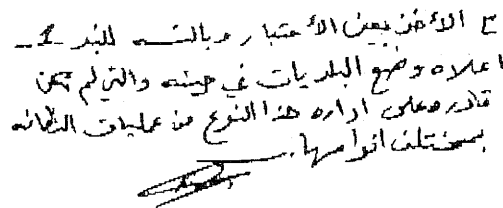 مع الأخذ بعين الأعتبار وبالنسبه للبند 1ـ
اعلاه وضع البلديات في حينه والتي لم تكن
قادره على اداره هذا النوع من عمليات النظافه
بمختلف انواعها.